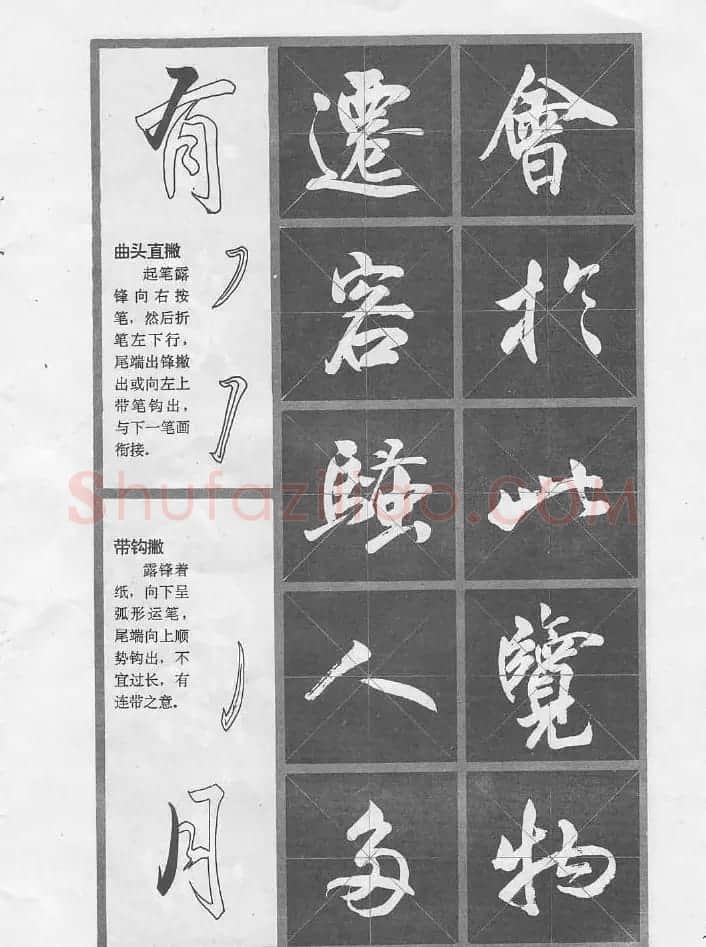 有
曲头直撇
起笔露
锋向右按
笔，然后折
笔左下行，
尾端出锋撇
出或向左上
带笔钩出，
与下一笔画
衔接．
带钩撇
露锋着
纸，向下呈
弧形运笔，
尾端向上顺
势钩出，不
宜过长，有
连带之意．
月
遷客騷人多
會於此覽物
Shufaziliao.COM